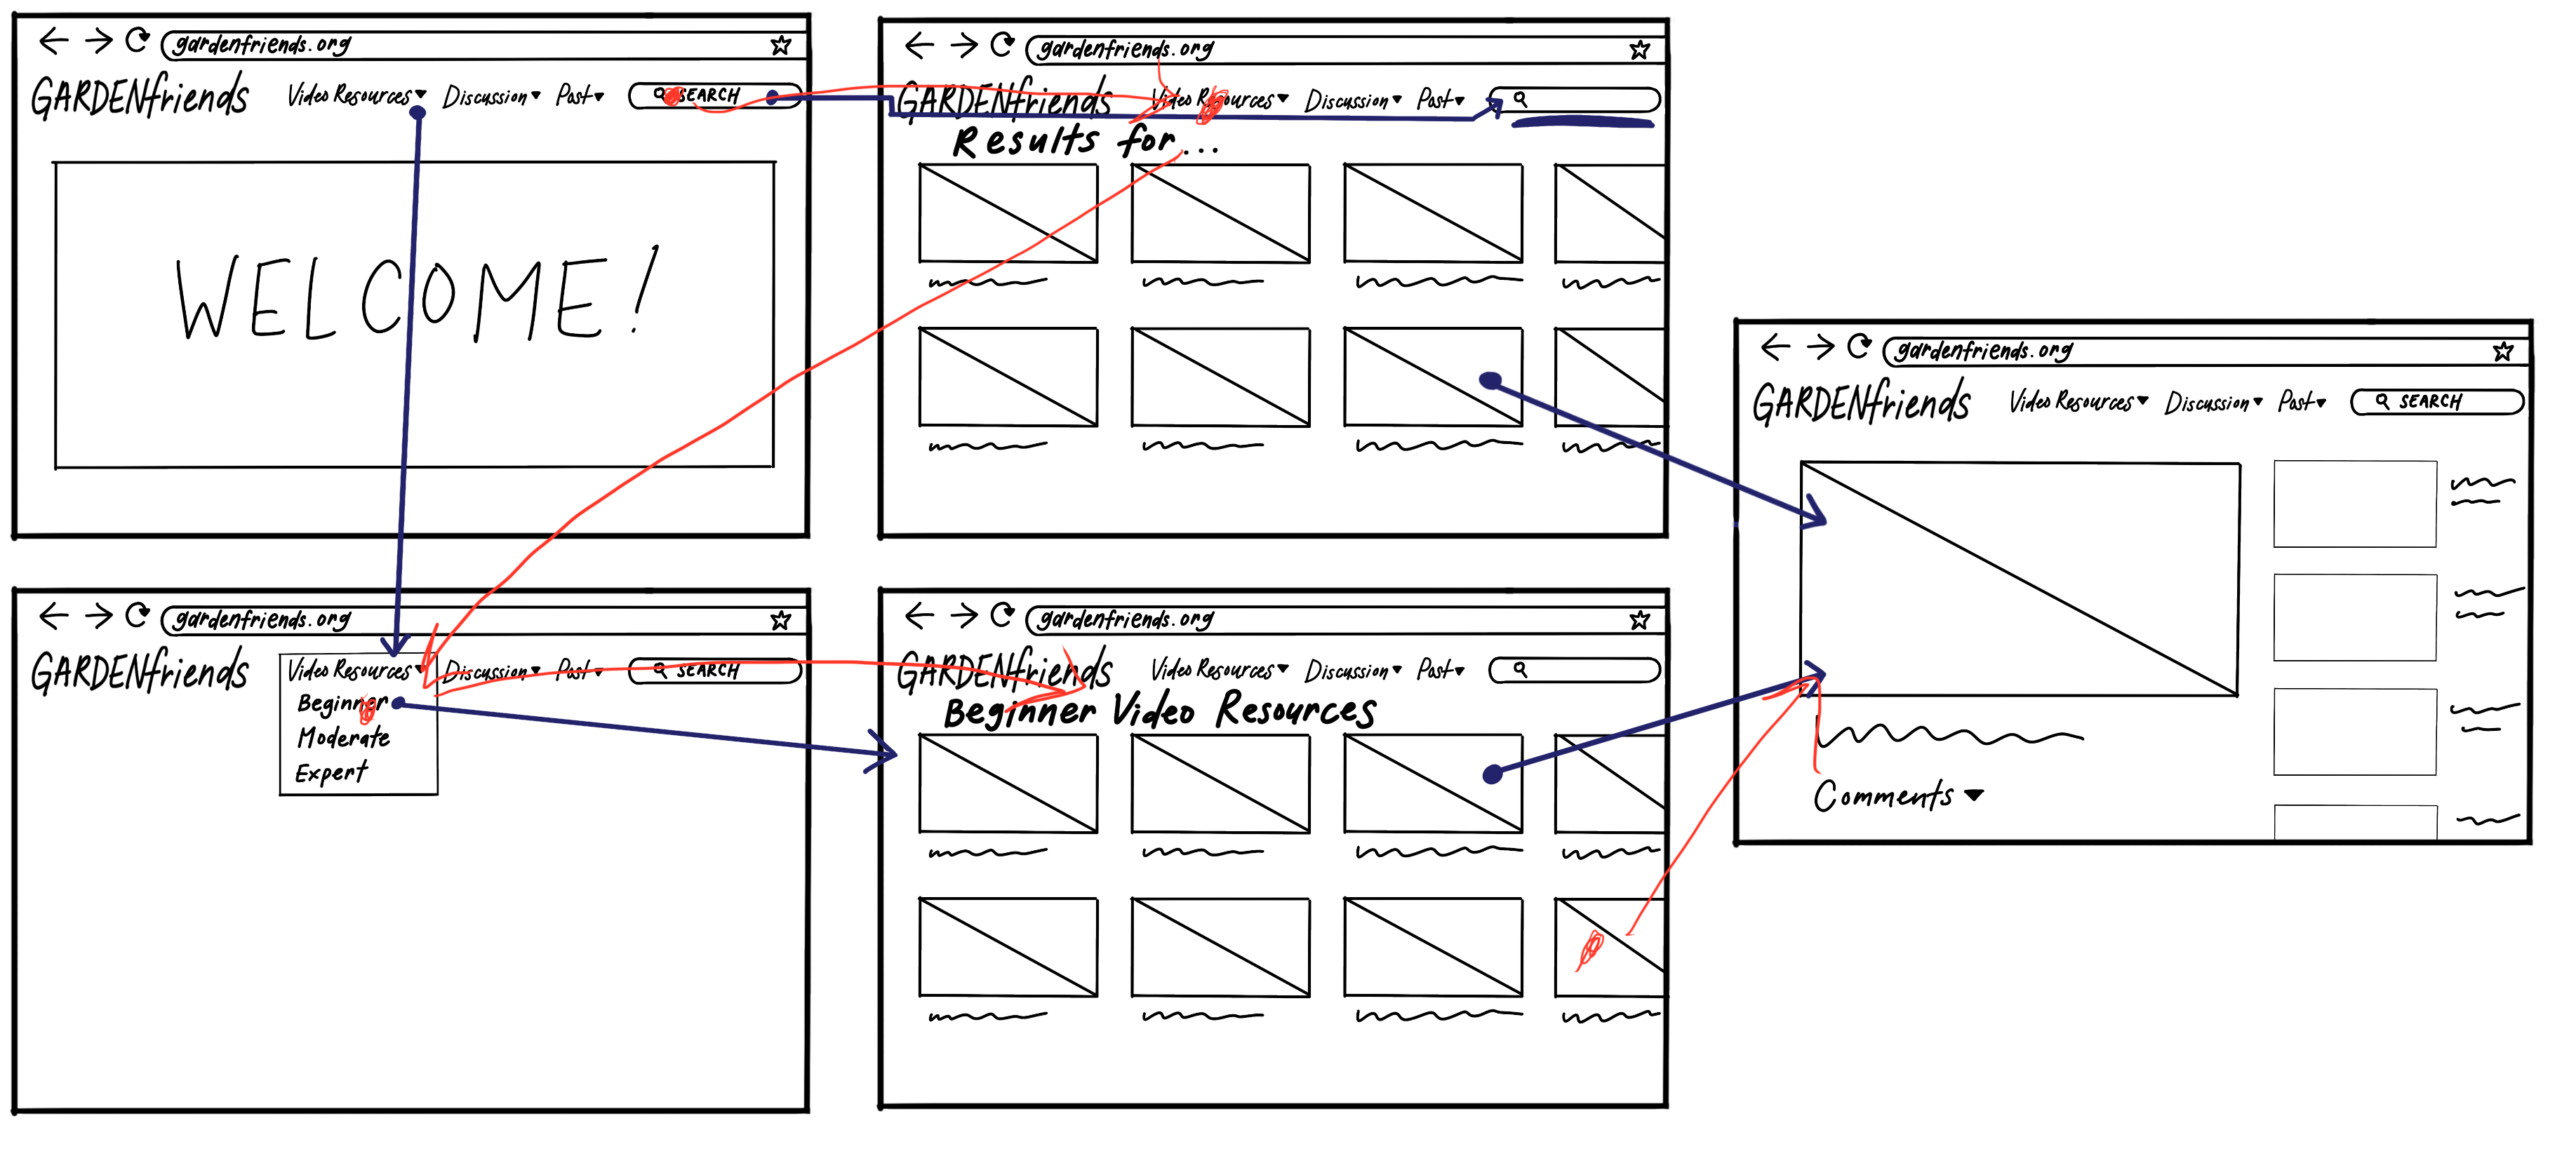 gardenfriends.org
GARDENfriends Video Resources Discussion Post SEARCH
WELCOME!
gardenfriends.org
GARDENfriends Video Resources Discussion Post
Results for...
gardenfriends.org
GARDENfriends Video Resources Discussion Post SEARCH
Beginner
Moderate
Expert
gardenfriends.org
GARDENfriends Video Resources Discussion Post
Beginner Video Resources
gardenfriends.org
GARDENfriends Video Resources Discussion Post SEARCH
Comments